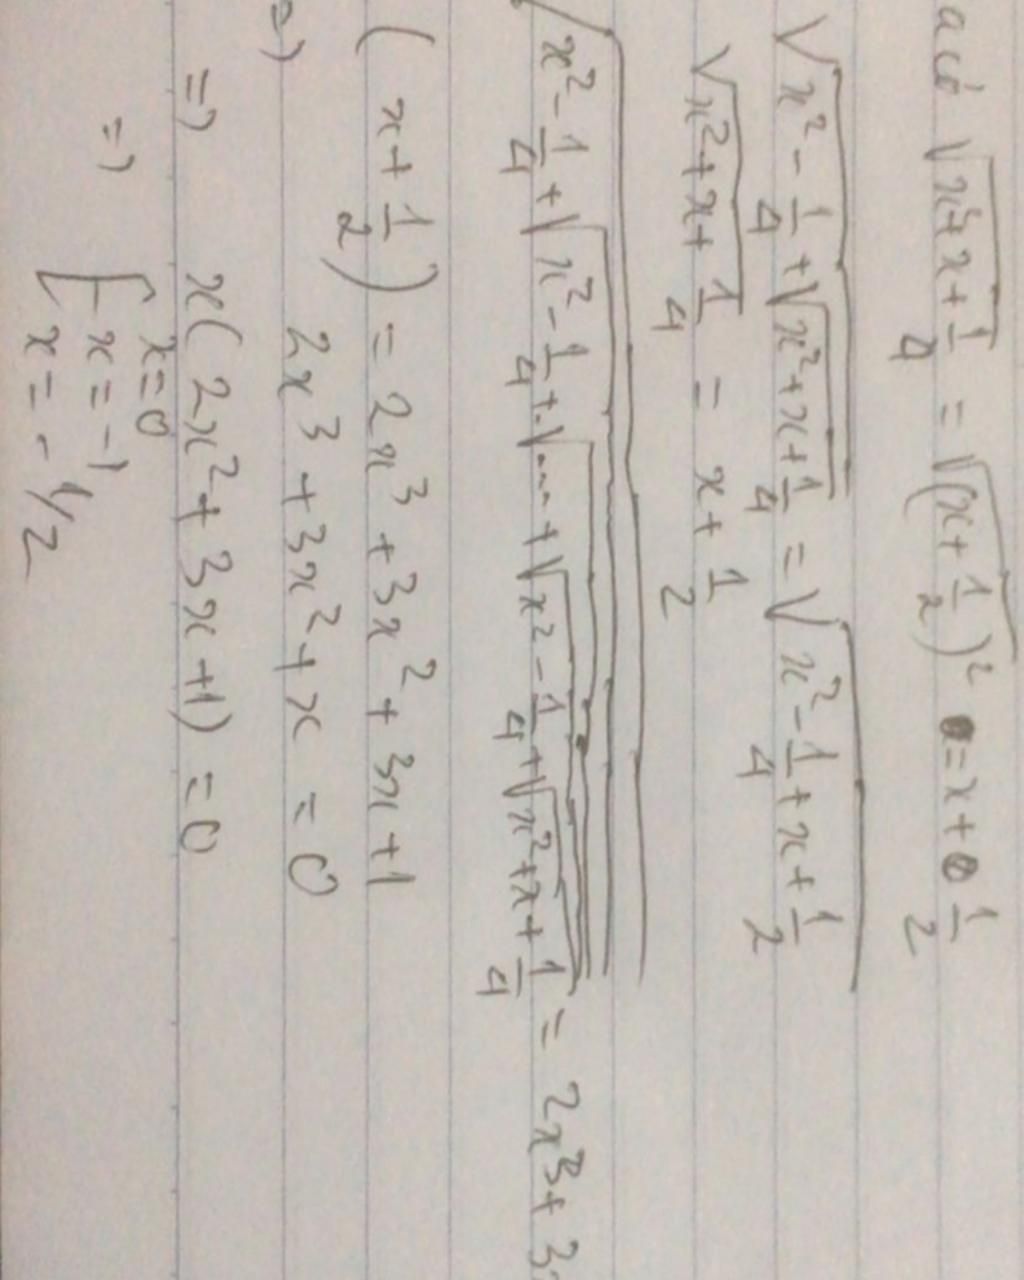 a có √(x²+x+1/4) = √((x+1/2)²) = x+1/2
√(x²-1/4+√(x²+x+1/4)) = √(x²-1/4+x+1/2)
√(x²+x+1/4) = x+1/2
√(x²-1/4+√(x²-1/4+√(...+√(x²-1/4+√(x²+x+1/4))))) = 2x³+3
(x+1/2) = 2x³+3x²+3x+1
=) 2x³+3x²+x=0
=) x(2x²+3x+1)=0
=) [ x=0
x=-1
x=-1/2